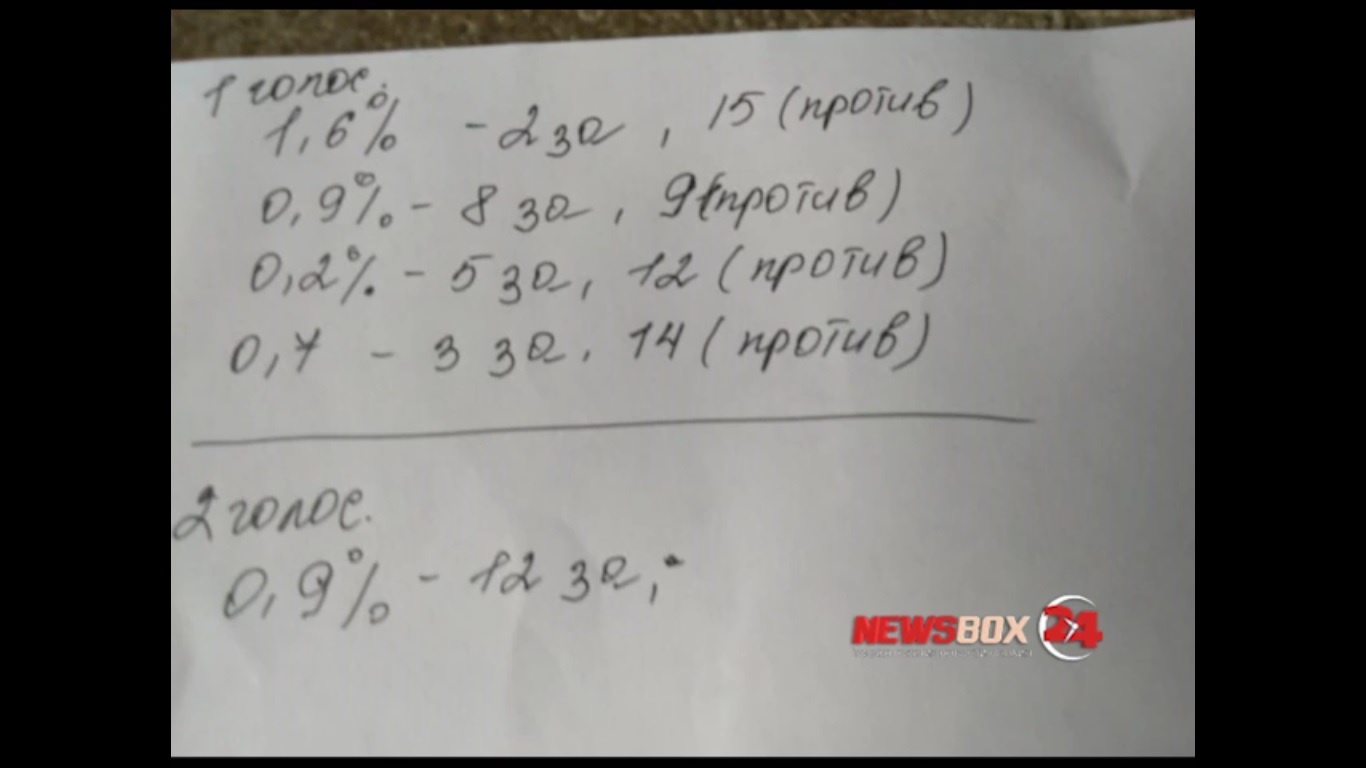 1 голос.
1,6% - 2 за, 15 (против)
0,9% - 8 за, 9 (против)
0,2% - 5 за, 12 (против)
0,7 - 3 за, 14 (против)
2 голос.
0,9% - 12 за,
NEWSBOX 24